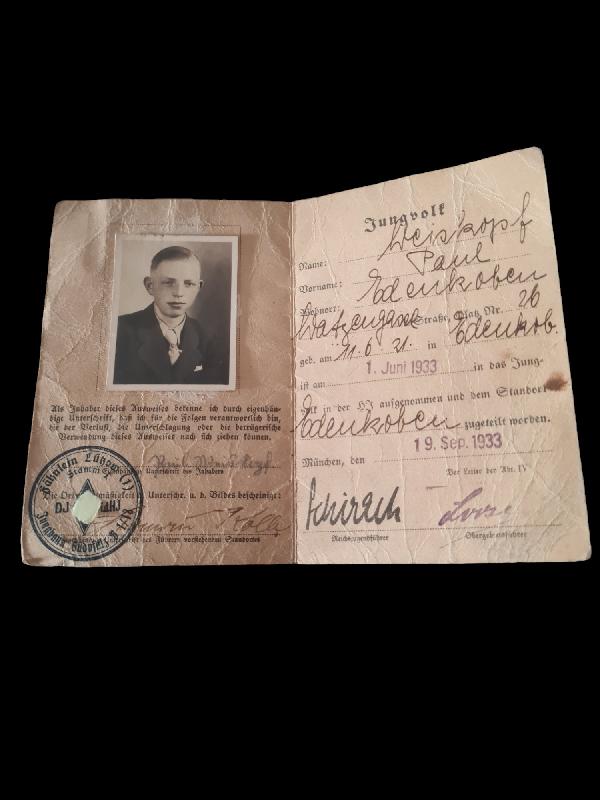 Als Inhaber dieses Ausweises bekenne ich durch eigenhän-
dige Unterschrift, daß ich für die Folgen verantwortlich bin,
die der Verlust, die Unterschlagung oder die betrügerische
Verwendung dieses Ausweises nach sich ziehen können.
Unterschrift des Inhabers
Unterschr. u. d. Bildes bescheinigt:
Unterschrift des Führers vorstehenden Standortes
Fähnlein Lützow (1)
Stamm
DJ
HJ
Jungbann Südpfalz
Jungvolk
Name: Weiskopf
Vorname: Paul
Wohnort: Edenkoben
Watzengasse Straße, Platz Nr. 26
geb. am 11.6.21. in Edenkob.
ist am 1. Juni 1933 in das Jung-
volk in der HJ aufgenommen und dem Standort
Edenkoben zugeteilt worden.
München, den 19. Sep. 1933
Der Leiter der Abt. IV
Schirach
Reichsjugendführer
Obergebietsführer